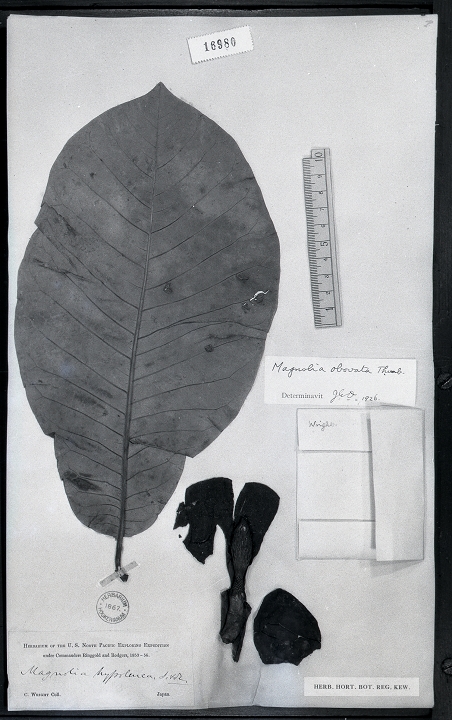 16980
10
5
1
Magnolia obovata Thunb.
Determinavit J.E.D. 1926.
Wright
HERBARIUM
1867
HOOKERIANUM
HERBARIUM OF THE U. S. NORTH PACIFIC EXPLORING EXPEDITION
under Commanders Ringgold and Rodgers, 1853-56.
Magnolia hypoleuca. S. & Z.
C. WRIGHT Coll. Japan.
HERB. HORT. BOT. REG. KEW.